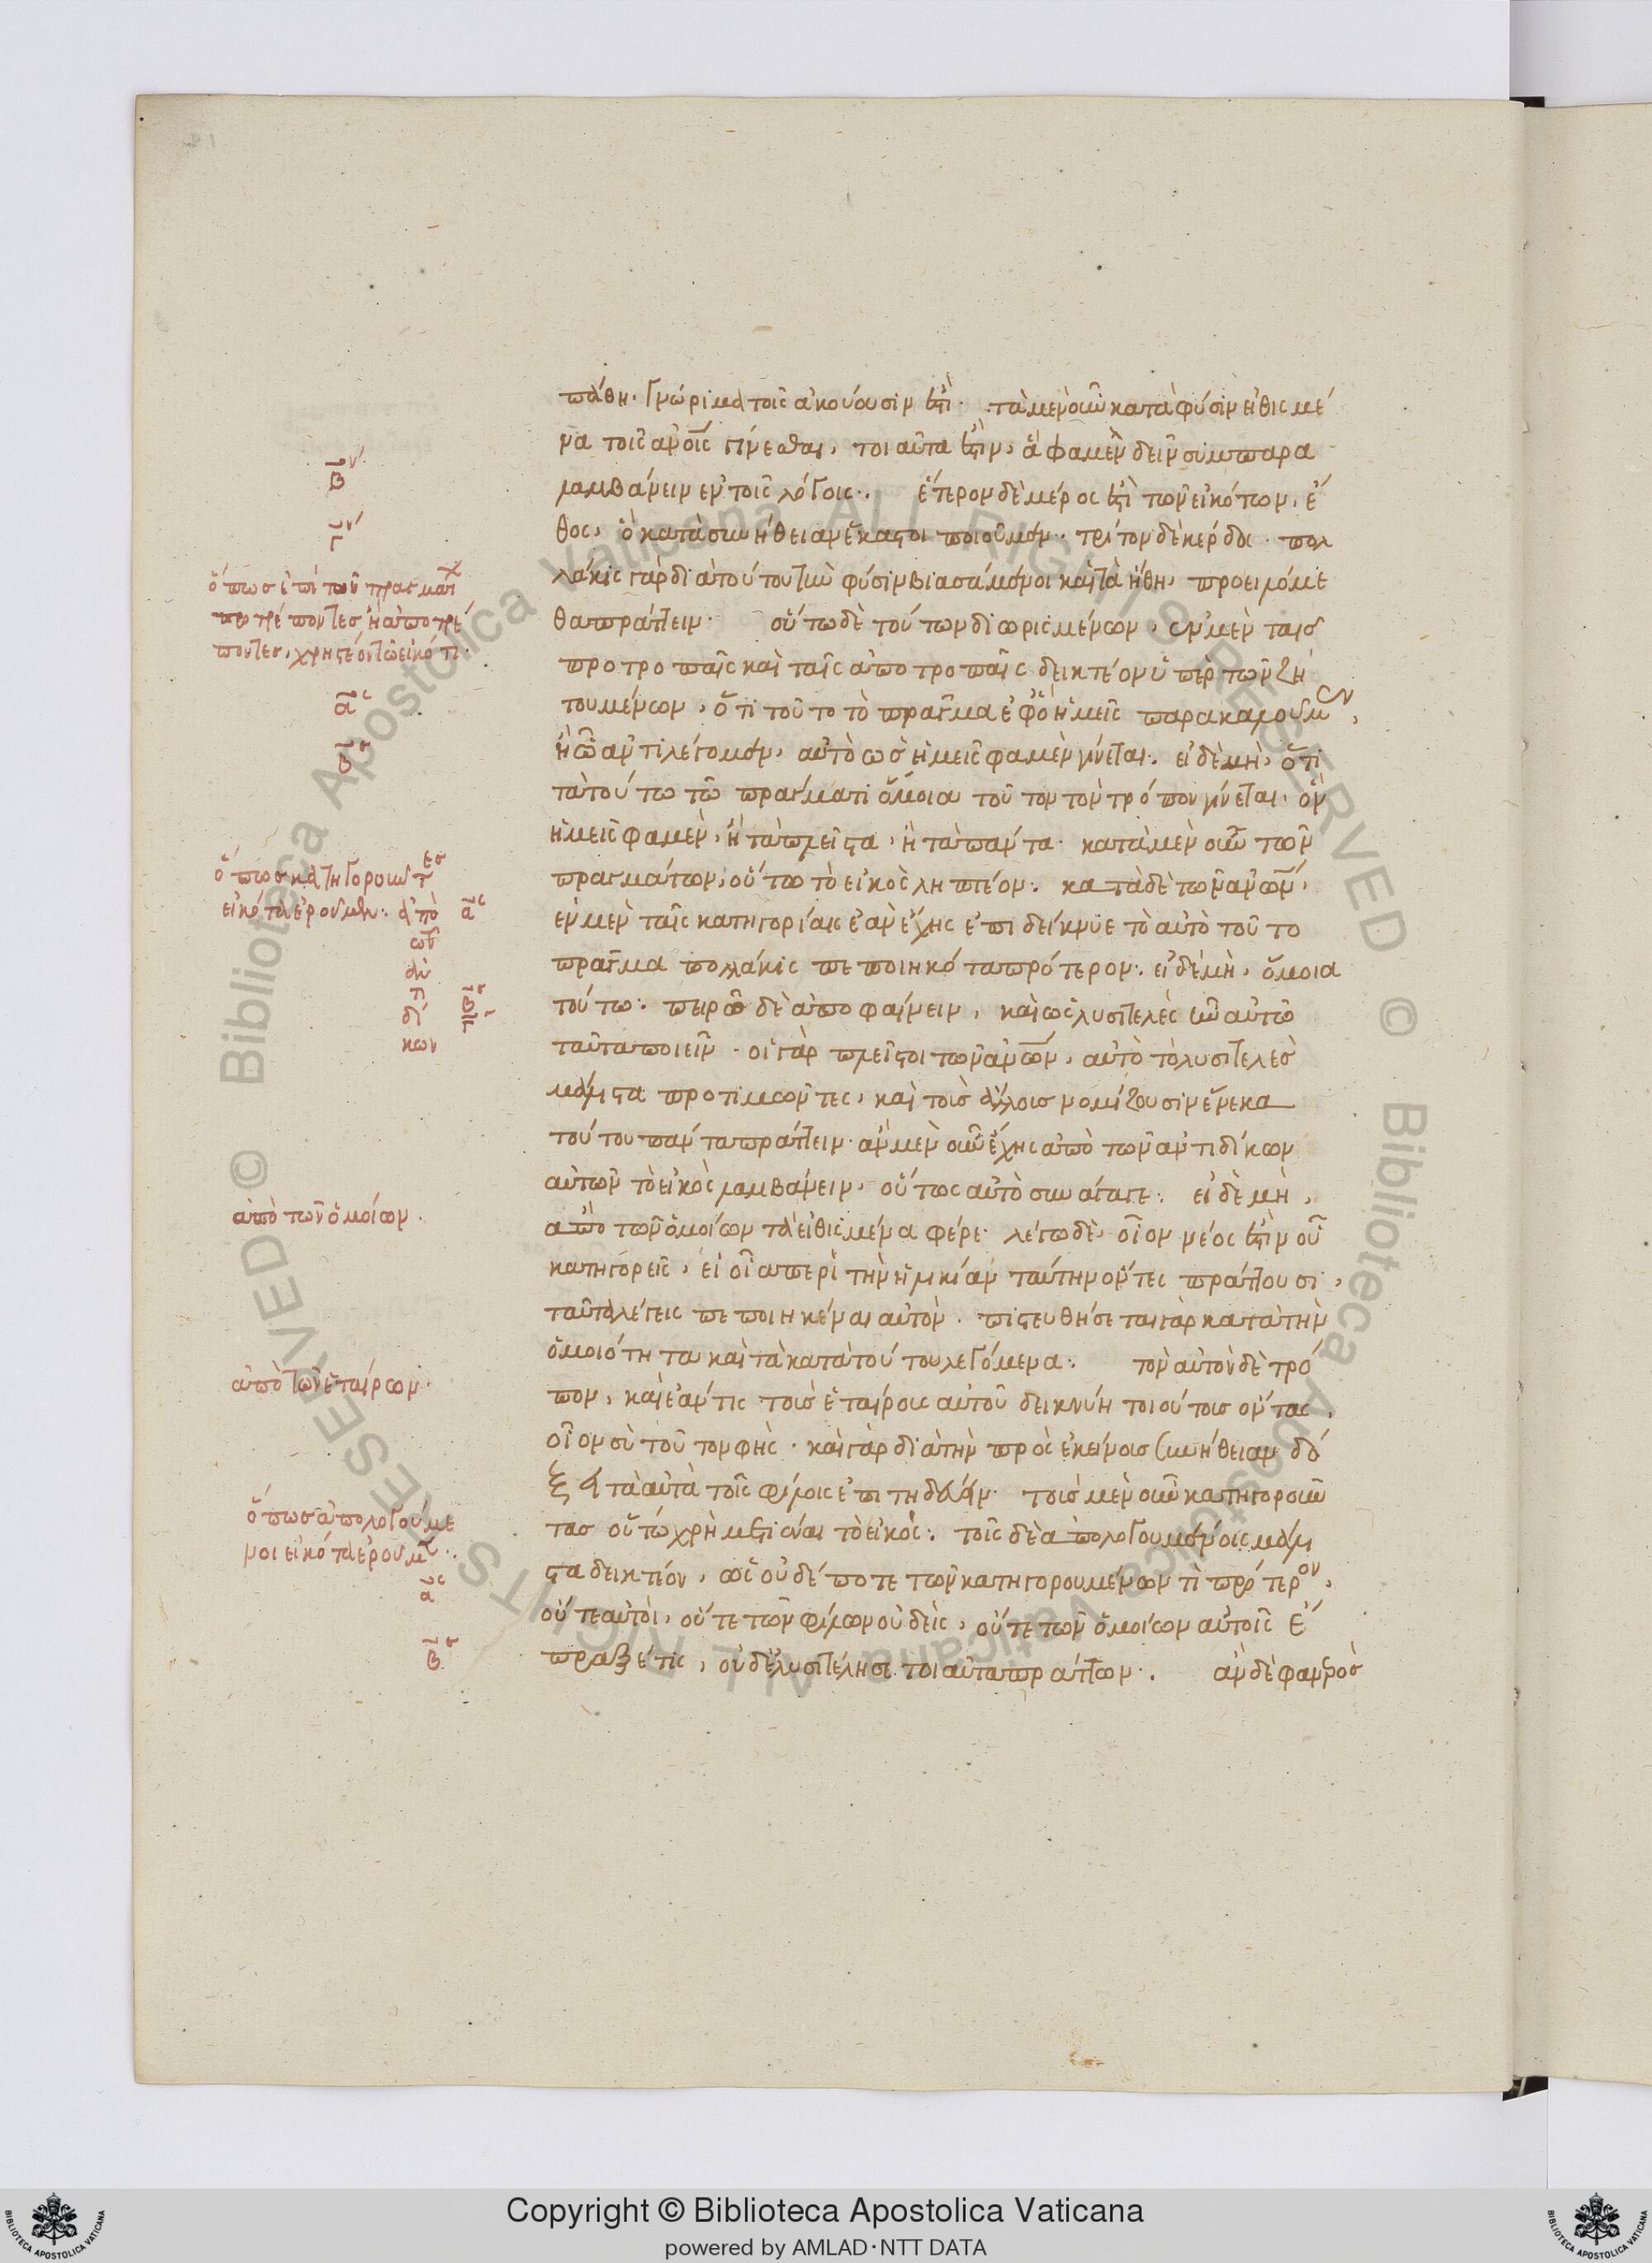 πάθη· γνώριμα τοῖς ἀκούουσιν ἐστί· τὰ μὲν οὖν κατὰ φύσιν εἰθισμέ
να τοῖς ἀνοις γίνεσθαι, τοιαῦτα ἐστὶν, ἃ φαμὲν δεῖν συμπαρα
λαμβάνειν ἐν τοῖς λόγοις· ἕτερον δὲ μέρος ἐστὶ τῶν εἰκότων, ἔ
θος, ὃ κατὰ συνήθειαν ἕκαστοι ποιοῦμεν· τρίτον δὲ κέρδος· πολ
λάκις γὰρ διὰ τοῦτο τὴν φύσιν βιασάμενοι καὶ τὰ ἤθη, προειλόμε
θα πράττειν· οὕτω δὲ τούτων διωρισμένων, ἐν μὲν ταῖς
προτροπαῖς καὶ ταῖς ἀποτροπαῖς δεικτέον ὑπὲρ τῶν ζη
τουμένων, ὅτι τοῦτο τὸ πρᾶγμα ἐφ ὃ ἡμεῖς παρακαλοῦμεν,
ἢ ὧ ἀντιλέγομεν, αὐτὸ ὡς ἡμεῖς φαμὲν γίνεται· εἰ δὲ μὴ, ὅτι
τὰ τούτω τῶ πράγματι ὅμοια τοῦτον τὸν τρόπον γίνεται· ὃν
ἡμεῖς φαμὲν, ἢ τὰ πλεῖστα, ἢ τὰ πάντα· κατὰ μὲν οὖν τῶν
πραγμάτων, οὕτω τὸ εἰκὸς ληπτέον· κατὰ δὲ τῶν ἀνων,
ἐν μὲν ταῖς κατηγορίαις ἐὰν ἔχης ἐπιδείκνυε τὸ αὐτὸ τοῦτο
πρᾶγμα πολλάκις πεποιηκότα πρότερον· εἰ δὲ μὴ, ὅμοια
τούτω· πειρῶ δὲ ἀποφαίνειν, καὶ ὡς λυσιτελὲς ἦν αὐτῶ
ταῦτα ποιεῖν· οἱ γὰρ πλεῖστοι τῶν ἀνων, αὐτὸ τὸ λυσιτελὲς
μάλιστα προτιμῶντες, καὶ τοὺς ἄλλους νομίζουσιν ἕνεκα
τούτου πάντα πράττειν· ἂν μὲν οὖν ἔχης ἀπὸ τῶν ἀντιδίκων
αὐτῶν τὸ εἰκὸς λαμβάνειν, οὕτως αὐτὸ συνάγαγε· εἰ δὲ μὴ,
ἀπὸ τῶν ὁμοίων τὰ εἰθισμένα φέρε· λέγω δὲ, οἷον νέος ἐστὶν οὗ
κατηγορεῖς, εἰ οἷα περὶ τὴν ἡλικίαν ταύτην ὄντες πράττουσι,
ταῦτα λέγεις πεποιηκέναι αὐτόν· πιστευθήσεται γὰρ κατὰ τὴν
ὁμοιότητα καὶ τὰ κατὰ τούτου λεγόμενα· τὸν αὐτὸν δὲ τρό
πον, καὶ ἐάν τις τοὺς ἑταίρους αὐτοῦ δεικνύη τοιούτους ὄντας,
οἷον σὺ τοῦτον φὴς· καὶ γὰρ διὰ τὴν πρὸς ἐκείνους συνήθειαν δό
ξει τὰ αὐτὰ τοῖς φίλοις ἐπιτηδεύειν· τοὺς μὲν οὖν κατηγοροῦν
τας οὕτω χρὴ μετιέναι τὸ εἰκός· τοῖς δὲ ἀπολογουμένοις μάλι
στα δεικτέον, ὡς οὐδέποτε τῶν κατηγορουμένων τὶ πρότερον,
οὔτε αὐτοὶ, οὔτε τῶν φίλων οὐδεὶς, οὔτε τῶν ὁμοίων αὐτοῖς ἔ
πραξέ τις, οὐδ' ἐλυσιτέλησε τοιαῦτα πράττων· ἂν δὲ φανερὸς
β
γ
ὅπως ἐπὶ τῶν πραγμάτ
προτρέποντες ἢ ἀποτρέ
ποντες, χρηστέον τῶ εἰκότι·
α
β
ὅπως κατηγοροῦντες
εἰκότα ἐροῦμεν· ἀπὸ α
των
ἀν
τι
δί β γ
κων
ἀπὸ τῶν ὁμοίων·
ἀπὸ τῶν ἑταίρων·
ὅπως ἀπολογούμε
νοι εἰκότα ἐροῦμεν·
α
β
© Biblioteca Apostolica Vaticana ALL RIGHTS RESERVED © Biblioteca Apostolica Vaticana ALL RIGHTS RESERVED
Copyright © Biblioteca Apostolica Vaticana
powered by AMLAD·NTT DATA
BIBLIOTECA APOSTOLICA VATICANA
BIBLIOTECA APOSTOLICA VATICANA